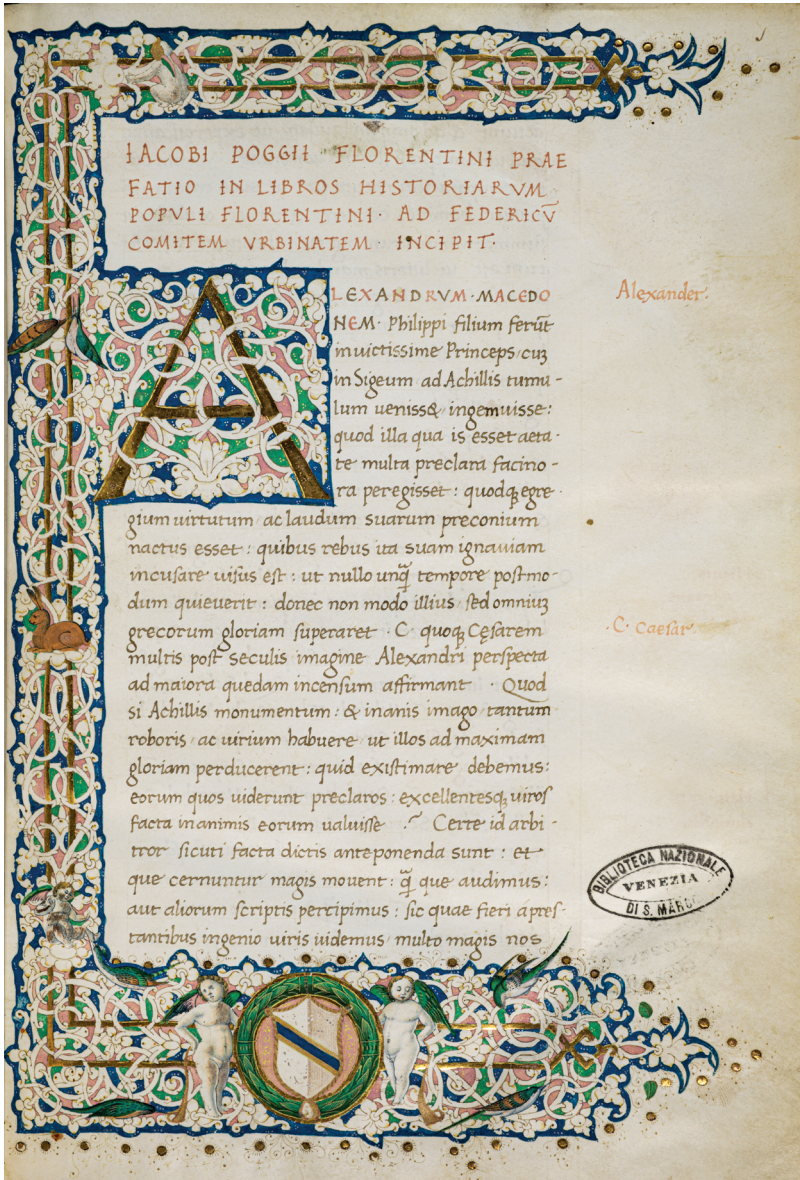 IACOBI POGGII FLORENTINI PRAE
FATIO IN LIBROS HISTORIARVM
POPVLI FLORENTINI· AD FEDERICV̄
COMITEM VRBINATEM· INCIPIT·
ALEXANDRVM·MACEDO
NEM· Philippi filium ferūt
inuictissime Princeps cuꝫ
in Sigeum ad Achillis tumu-
lum uenisset ingemuisse:
quod illa qua is esset aeta-
te multa preclara facino-
ra peregisset: quodqꝫ egre-
gium uirtutum ac laudum suarum preconium
nactus esset: quibus rebus ita suam ignauiam
incusare uisus est: ut nullo unq̄ tempore postmo-
dum quieuerit: donec non modo illius sed omniuꝫ
grecorum gloriam superaret· C· quoqꝫ Cęsarem
multis post seculis imagine Alexandri perspecta
ad maiora quedam incensum affirmant· Quod
si Achillis monumentum: & inanis imago tantum
roboris ac uirium habuere ut illos ad maximam
gloriam perducerent: quid existimare debemus:
eorum quos uiderunt preclaros: excellentesqꝫ uiros
facta in animis eorum ualuisse? Certe id arbi-
tror sicuti facta dictis anteponenda sunt: et
que cernuntur magis mouent: q̄ que audimus:
aut aliorum scriptis percipimus: sic quae fieri a pres-
tantibus ingenio uiris uidemus multo magis nos
Alexander·
·C· Caesar·
BIBLIOTECA NAZIONALE
VENEZIA
DI S. MARCO